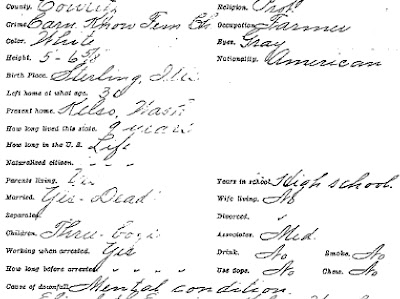 County. Cowlitz Religion. Prot.
Crime. Carn. Know Fem Ch. Occupation. Farmer
Color. White Eyes. Gray
Height. 5-6 5/8 Nationality. American
Birth Place. Sterling, Ill.
Left home at what age. 30
Present home. Kelso, Wash
How long lived this state. 9 years
How long in the U. S. Life
Naturalized citizen. " " "
Parents living. Years in school. High school.
Married. Yes - Dead Wife living. No
Separated. Divorced. "
Children. Three Boys Associates. Med.
Working when arrested. Yes Drink. No Smoke. No
How long before arrested. " " " Use Dope. No Chew. No
Cause of downfall. Mental condition.